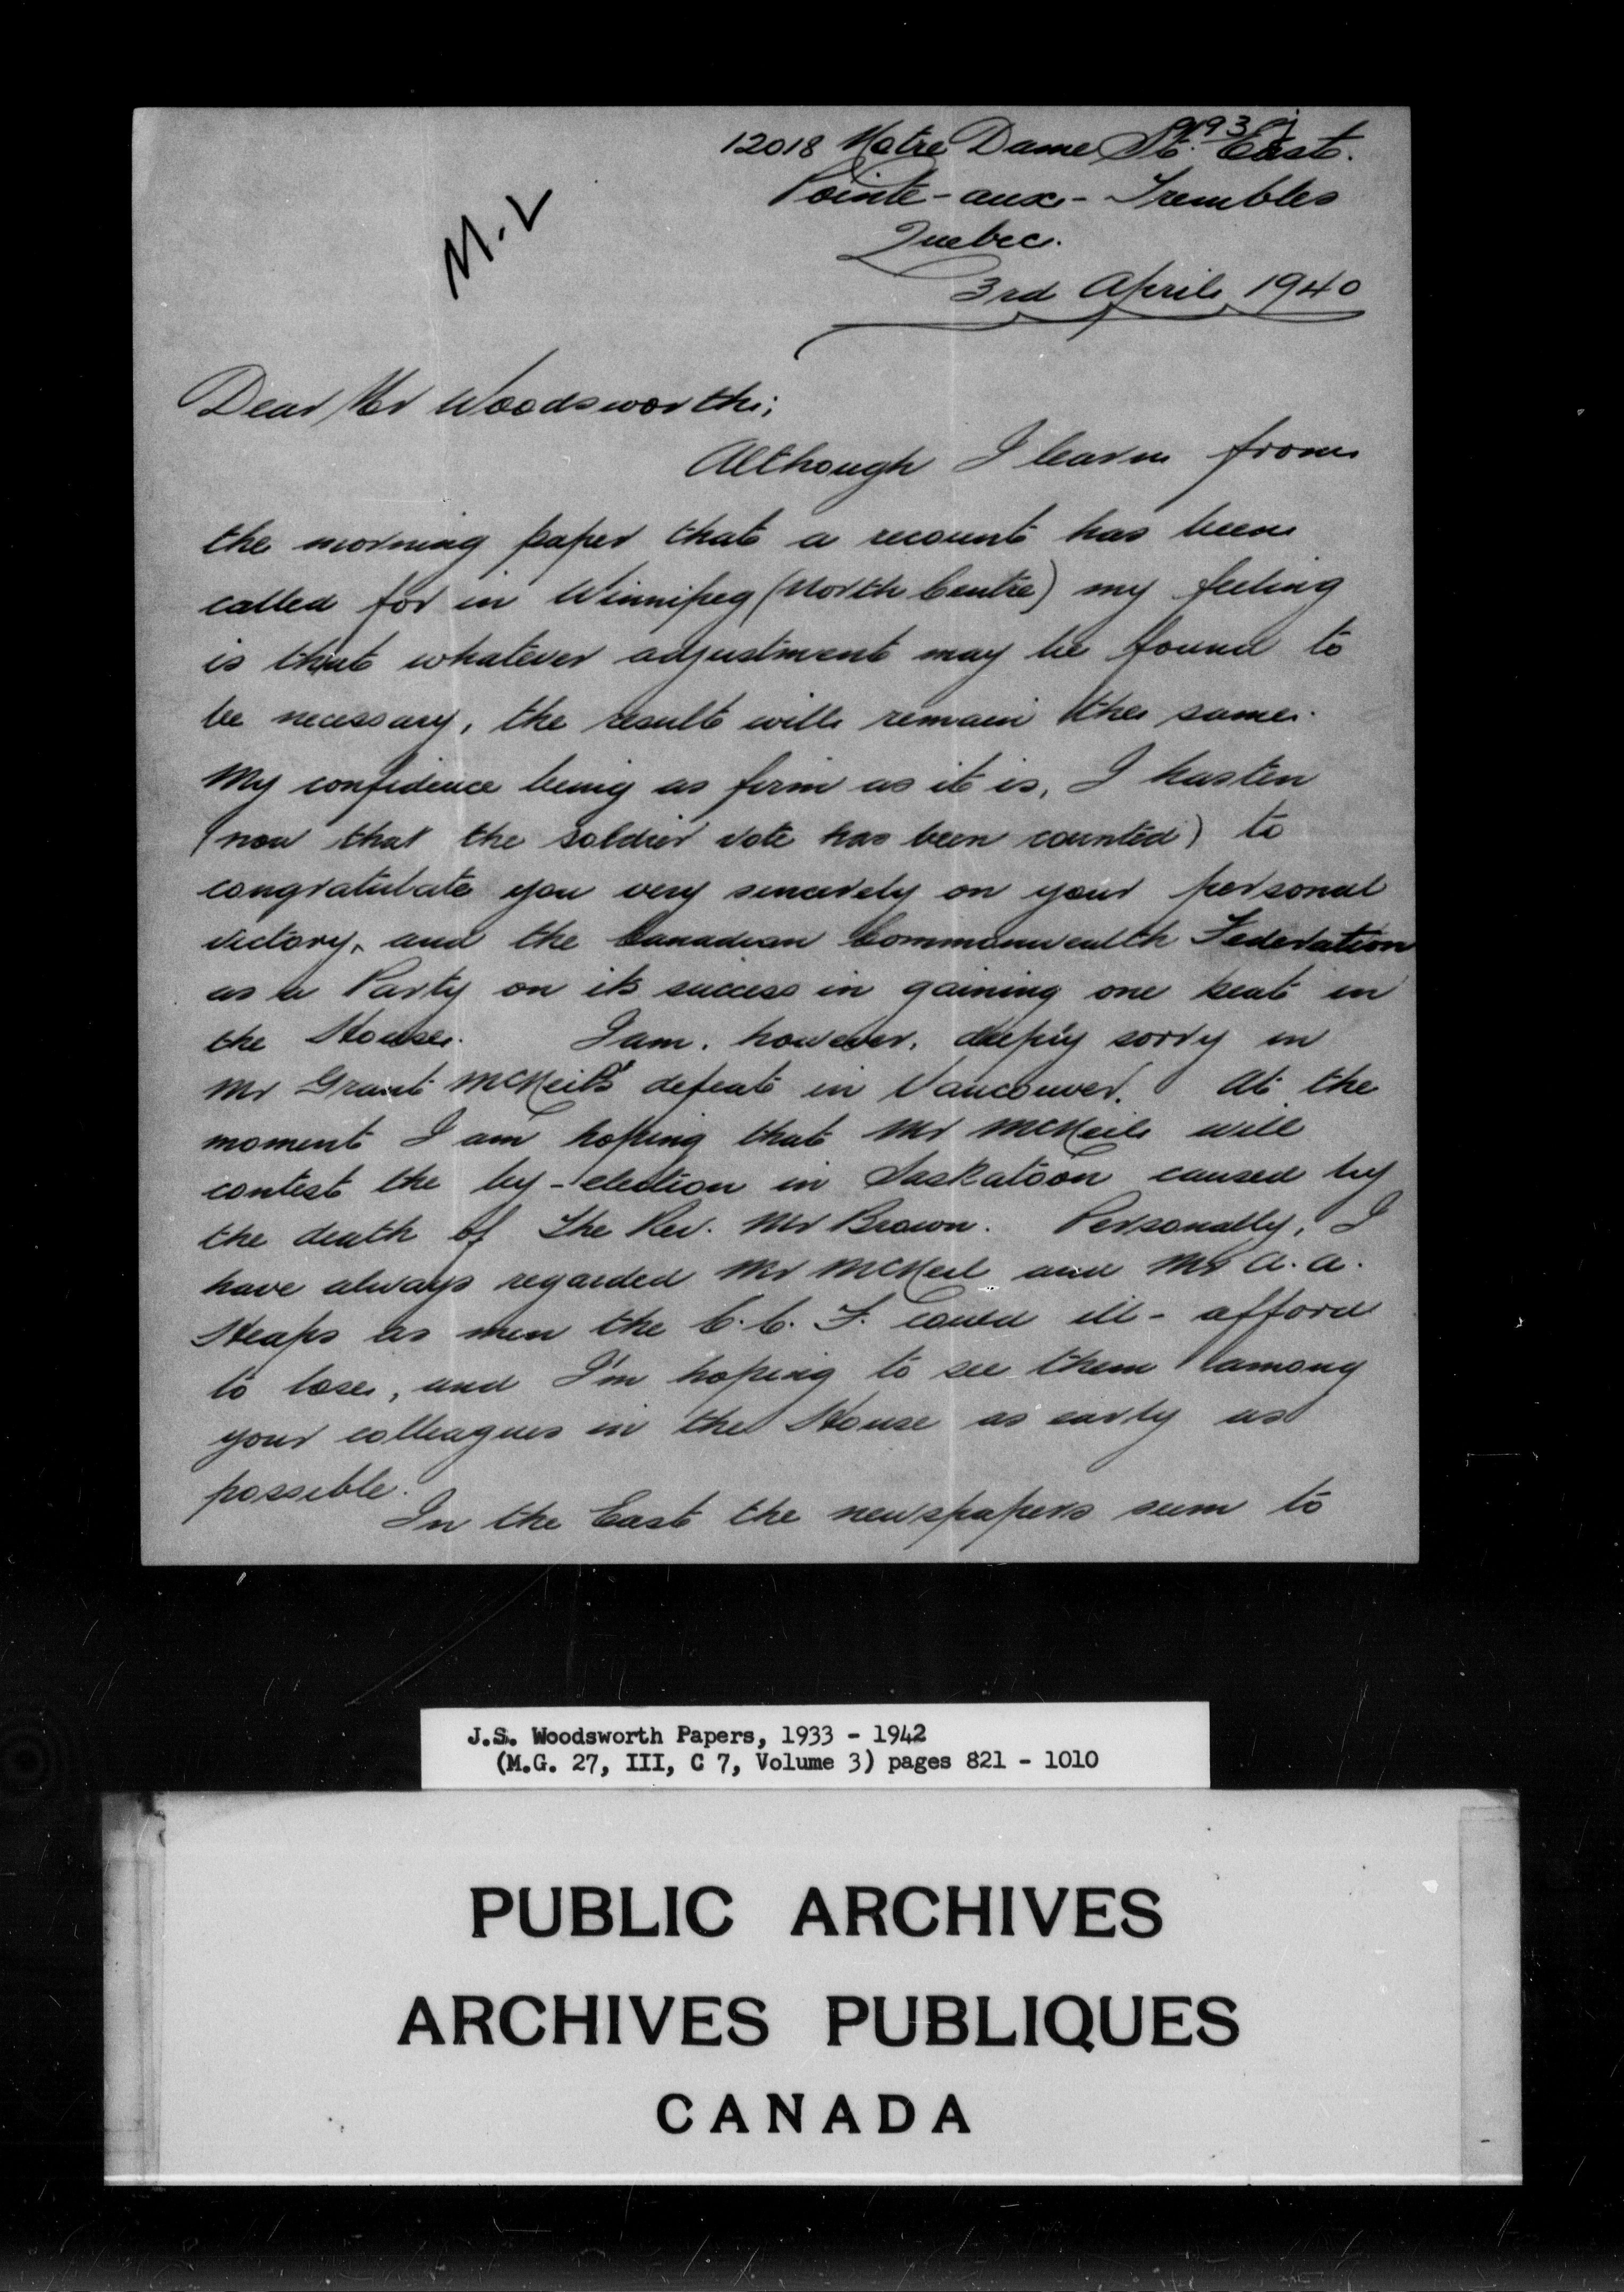 12018 Notre Dame St. East.
Pointe-aux-Trembles
Quebec.
3rd April 1940
M.L
Dear Mr Woodsworth;
Although I learn from
the morning paper that a recount has been
called for in Winnipeg (North Centre) my feeling
is that whatever adjustment may be found to
be necessary, the result will remain the same.
My confidence being as firm as it is, I hasten
(now that the soldier vote has been counted) to
congratulate you very sincerely on your personal
victory, and the Canadian Commonwealth Federation
as a Party on its success in gaining one seat in
the House. I am, however, deeply sorry in
Mr Grant McNeil's defeat in Vancouver. At the
moment I am hoping that Mr McNeil will
contest the by-election in Saskatoon caused by
the death of The Rev. Mr Brown. Personally, I
have always regarded Mr McNeil and Mr A.A.
Heaps as men the C.C.F. could ill-afford
to lose, and I'm hoping to see them among
your colleagues in the House as early as
possible.
In the East the newspapers seem to
J.S. Woodsworth Papers, 1933 - 1942
(M.G. 27, III, C 7, Volume 3) pages 821 - 1010
PUBLIC ARCHIVES
ARCHIVES PUBLIQUES
CANADA